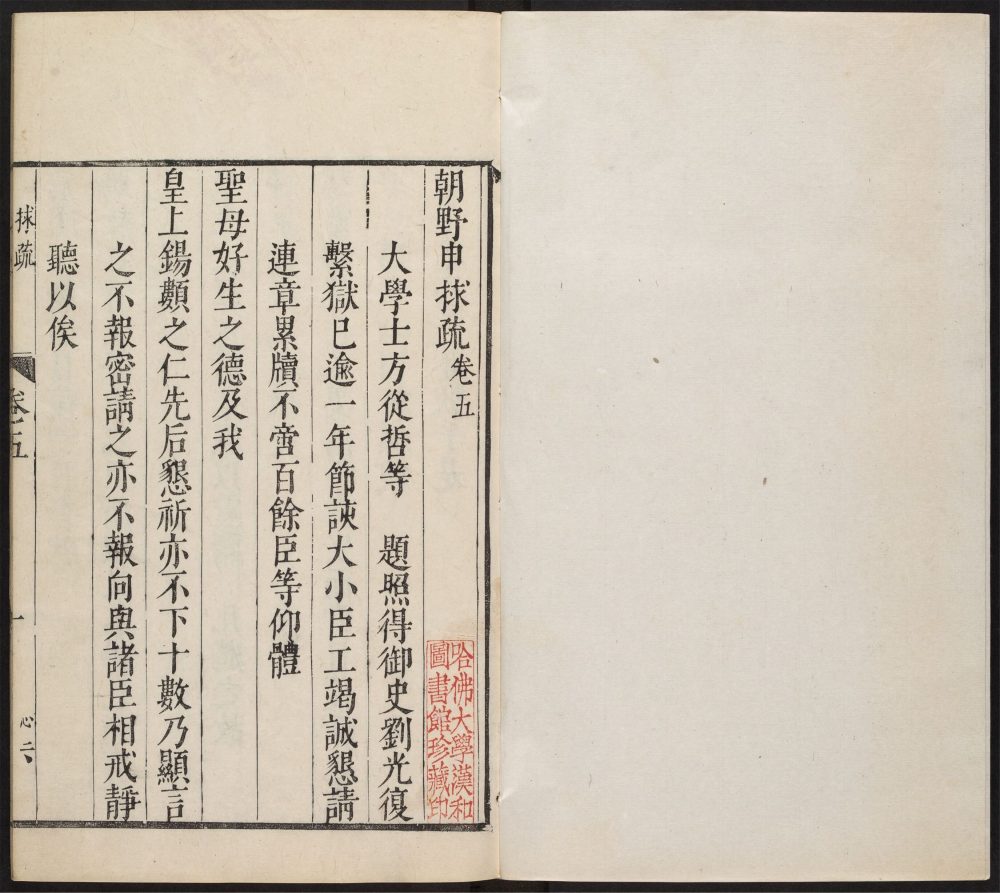 朝野申捄疏卷五
大學士方從哲等 題照得御史劉光復
繫獄已逾一年節諛大小臣工竭誠懇請
連章累牘不啻百餘臣等仰體
聖母好生之德及我
皇上錫類之仁先后懇祈亦不下十數乃顯言
之不報密請之亦不報向與諸臣相戒靜
聽以俟
捄疏 卷五 一 心六
哈佛大學漢和
圖書館珍藏印